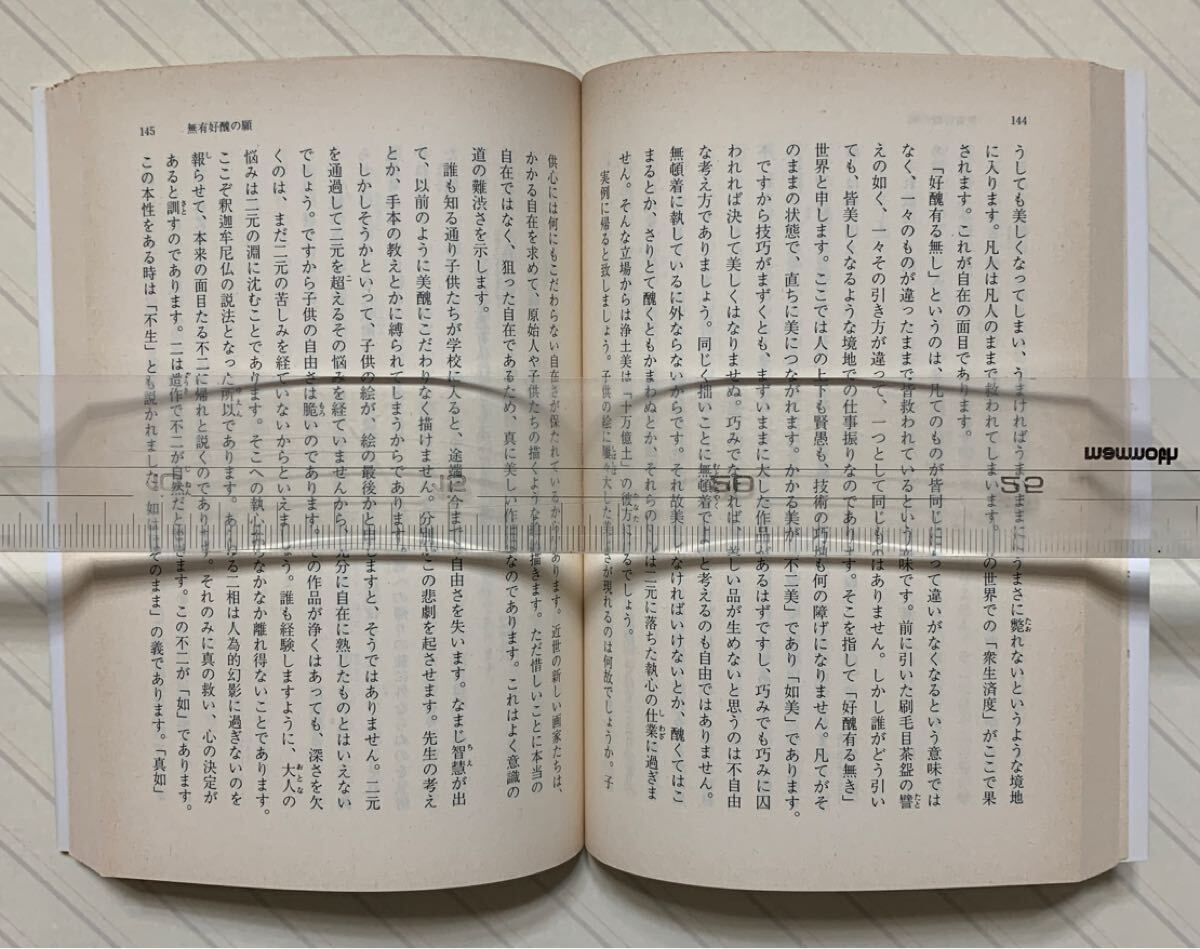 144
うしても美しくなってしまい、うまければうまいままにうまさに斃れないというような境地
に入ります。凡人は凡人のままで救われてしまいます。の世界での「衆生済度」がここで果
されます。これが自在の面目であります。
「好醜有る無し」というのは、凡てのものが皆同じになって違いがなくなるという意味では
なく、一々のものが違ったままで皆救われているという意味です。前に引いた刷毛目茶盌の譬
えの如く、一々その引き方が違って、一つとして同じものはありません。しかし誰がどう引い
ても、皆美しくなるような境地での仕事振りなのであります。そこを指して「好醜有る無き」
世界と申します。ここでは人の上下も賢愚も、技術の巧拙も何の障げになりません。凡てがそ
のままの状態で、直ちに美につながれます。かかる美が「不二美」であり「如美」であります。
ですから技巧がまずくとも、まずいままに大した作品があるはずですし、巧みでも巧みに囚
われれば決して美しくはなりませぬ。巧みでなければ、美しい品が生めないと思うのは不自由
な考え方でありましょう。同じく拙いことに無頓着でよいと考えるのも自由ではありません。
無頓着に執しているに外ならないからです。それ故美しなければいけないとか、醜くてはこ
まるとか、さりとて醜くともかまわぬとか、それらのは二元に落ちた執心の仕業に過ぎま
せん。そんな立場からは浄土美は「十万億土」の彼方にあるでしょう。
実例に帰ると致しましょう。子供の絵に屢々大した美しさが現れるのは何故でしょうか。子
145 無有好醜の願
供心には何にもこだわらない自在さが保たれているからであります。近世の新しい画家たちは、
かかる自在を求めて、原始人や子供たちの描くような絵を描きます。ただ惜しいことに本当の
自在ではなく、狙った自在であるため、真に美しい作はなのであります。これはよく意識の
道の難渋さを示します。
誰も知る通り子供たちが学校に入ると、途端に今まで自由さを失います。なまじ智慧が出
て、以前のように美醜にこだわりなく描けません。分別がこの悲劇を起させます。先生の考え
とか、手本の教えとかに縛られてしまうからであります。
しかしそうかといって、子供の絵が、絵の最後かと申しますと、そうではありません。二元
を通過して二元を超えるその悩みを経ていませんから、充分に自在に熟したものとはいえない
でしょう。ですから子供の自由さは脆いのであります。この作品が浄くはあっても、深さを欠
くのは、まだ二元の苦しみを経ていないからといえましょう。誰も経験しますように、大人の
悩みは二元の淵に沈むことであります。そこへの執心からなかなか離れ得ないことであります。
ここぞ釈迦牟尼仏の説法となった所以であります。あらゆる二相は人為的幻影に過ぎないのを
報らせて、本来の面目たる不二に帰れと説くのであります。それのみに真の救い、心の決定が
あると訓すのであります。二は造作で不二が自然だとします。この不二が「如」であります。
この本性をある時は「不生」とも説かれました。如はそのまま」の義であります。「真如」